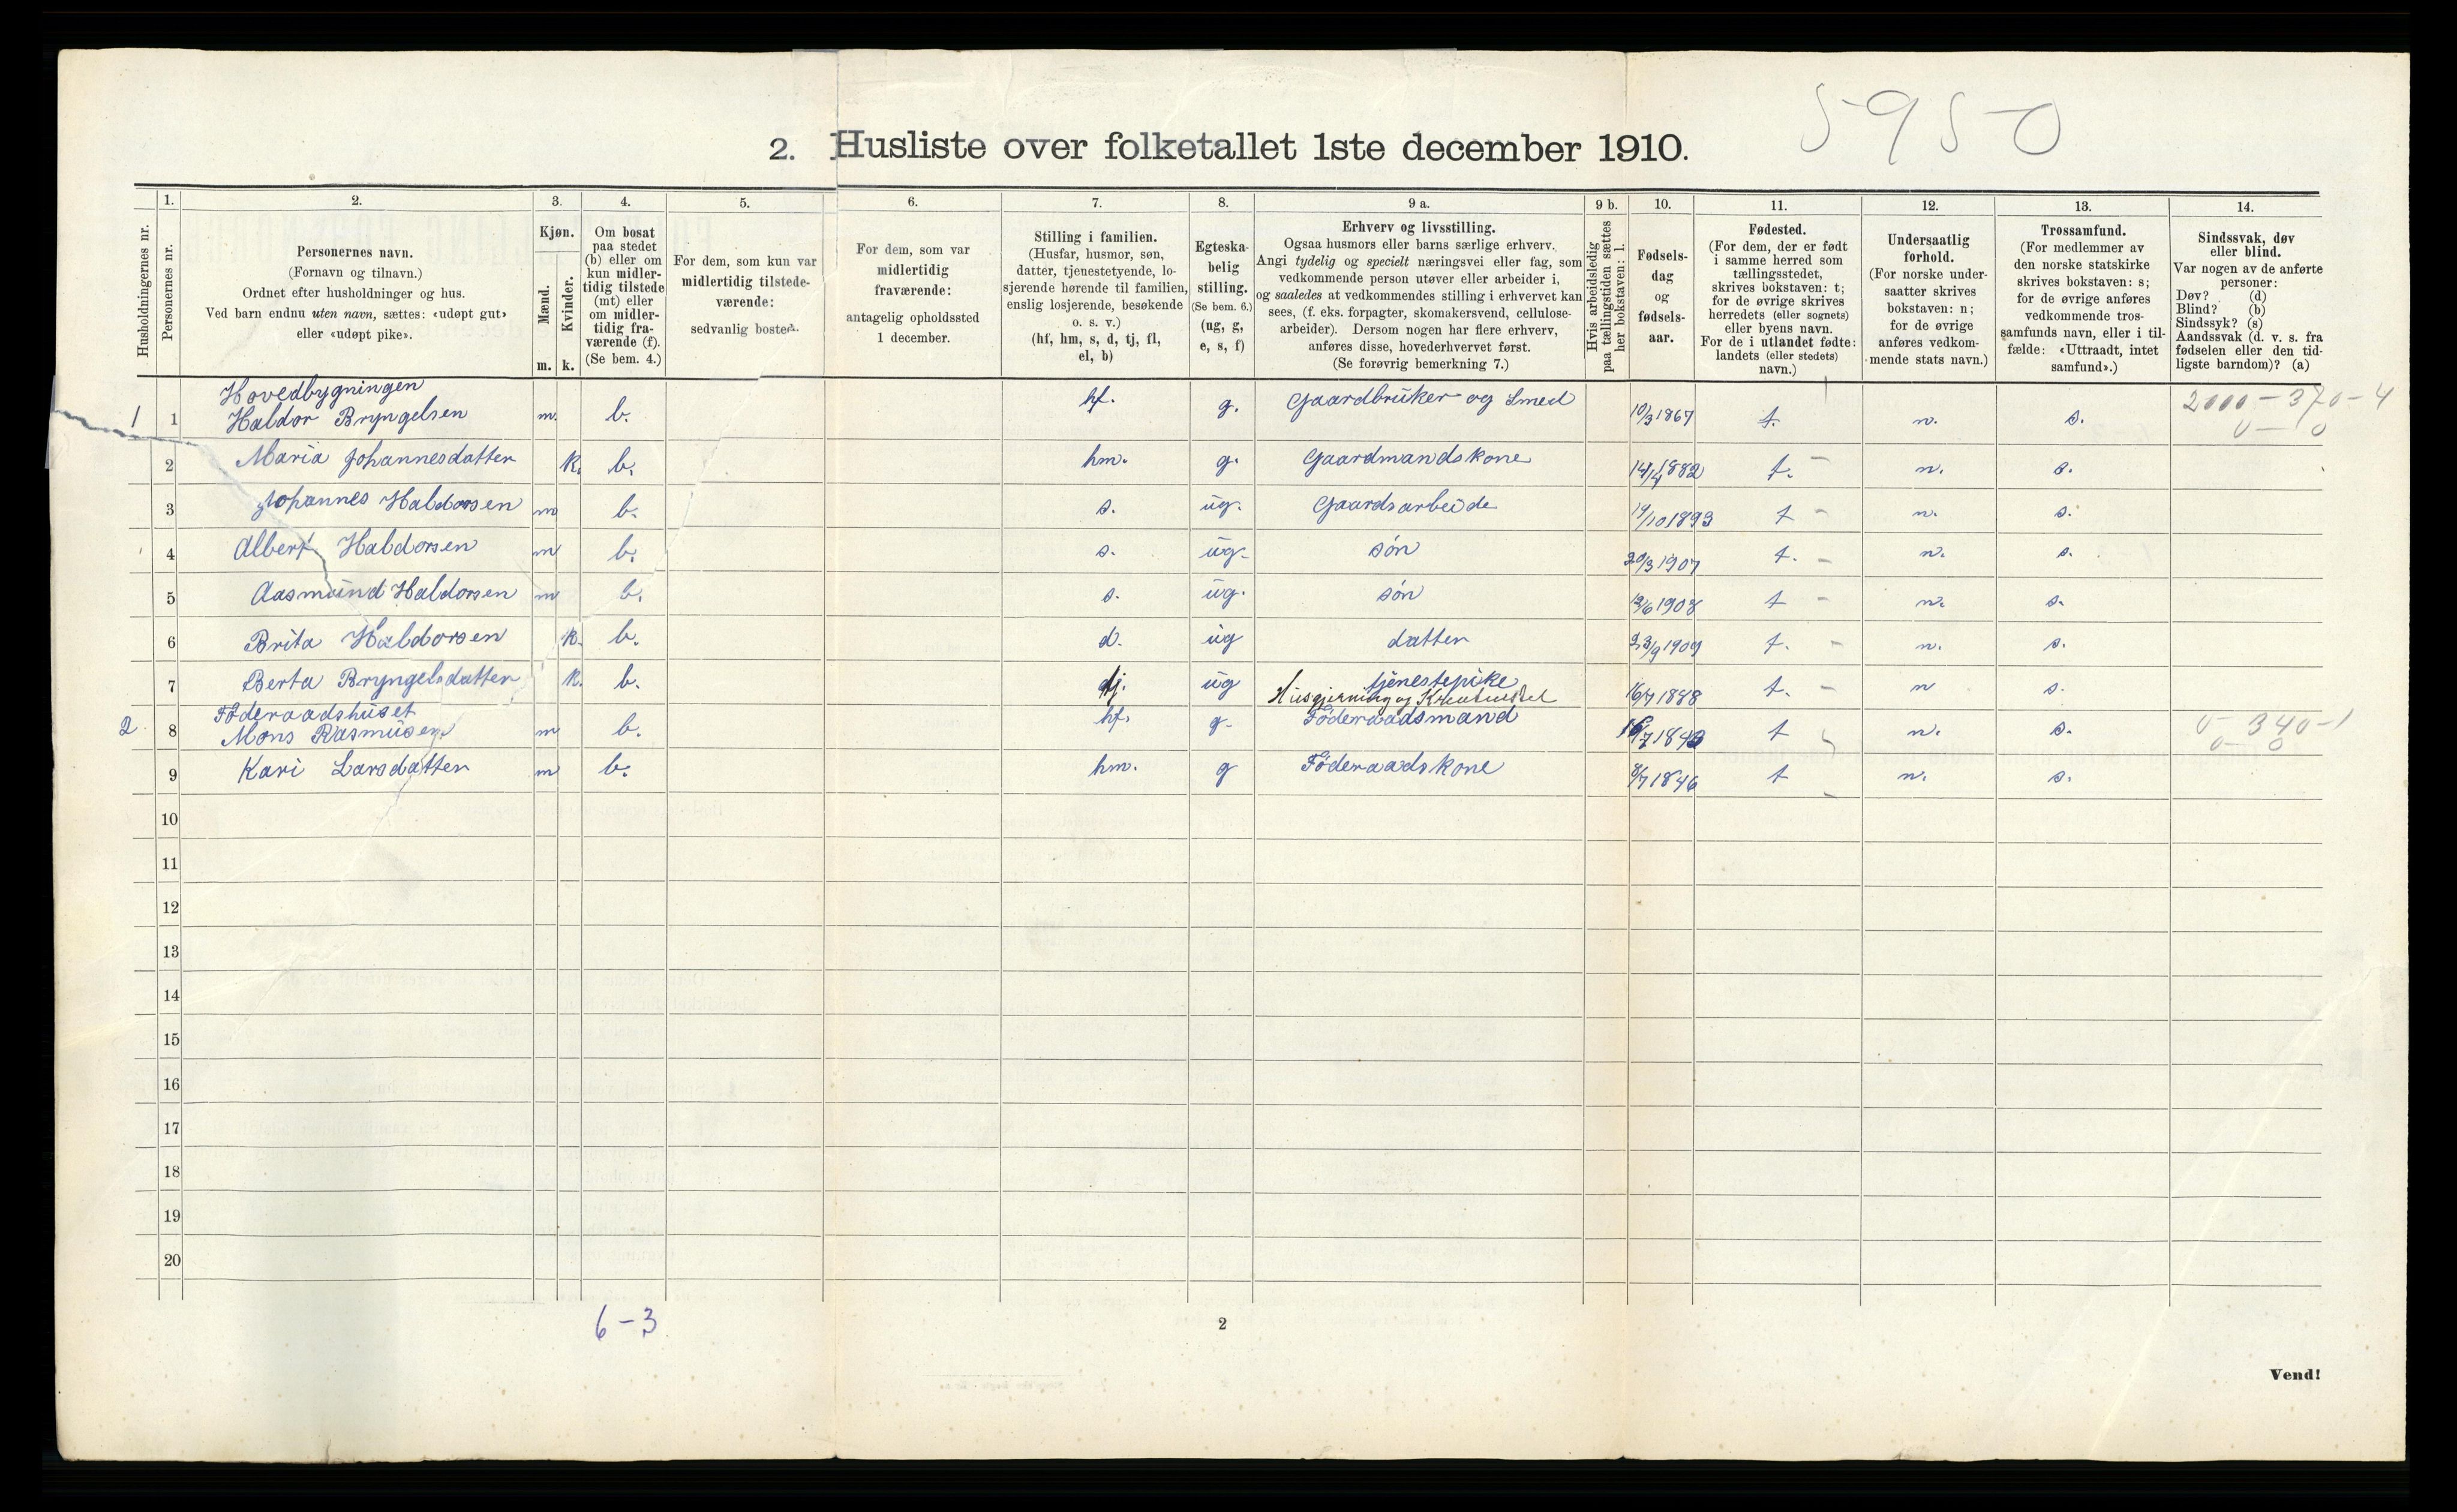 5950
2. Husliste over folketallet 1ste december 1910.
Husholdningernes nr.
1.
Personernes nr.
2.
Personernes navn.
(Fornavn og tilnavn.)
Ordnet efter husholdninger og hus.
Ved barn endnu uten navn, sættes: «udøpt gut»
eller «udøpt pike».
3.
Kjøn.
Mænd.
Kvinder.
m. k.
4.
Om bosat
paa stedet
(b) eller om
kun midler-
tidig tilstede
(mt) eller
om midler-
tidig fra-
værende (f).
(Se bem. 4.)
5.
For dem, som kun var
midlertidig tilstede-
værende:
sedvanlig bosted.
6.
For dem, som var
midlertidig
fraværende:
antagelig opholdssted
1 december.
7.
Stilling i familien.
(Husfar, husmor, søn,
datter, tjenestetyende, lo-
sjerende hørende til familien,
enslig losjerende, besøkende
o. s. v.)
(hf, hm, s, d, tj, fl,
el, b)
8.
Egteska-
belig
stilling.
(Se bem. 6.)
(ug, g,
e, s, f)
9 a.
Erhverv og livsstilling.
Ogsaa husmors eller barns særlige erhverv.
Angi tydelig og specielt næringsvei eller fag, som
vedkommende person utøver eller arbeider i,
og saaledes at vedkommendes stilling i erhvervet kan
sees, (f. eks. forpagter, skomakersvend, cellulose-
arbeider). Dersom nogen har flere erhverv,
anføres disse, hovederhvervet først.
(Se forøvrig bemerkning 7.)
9 b.
Hvis arbeidsledig
paa tællingstiden sættes
her bokstaven: l.
10.
Fødsels-
dag
og
fødsels-
aar.
11.
Fødested.
(For dem, der er født
i samme herred som
tællingsstedet,
skrives bokstaven: t;
for de øvrige skrives
herredets (eller sognets)
eller byens navn.
For de i utlandet fødte:
landets (eller stedets)
navn.)
12.
Undersaatlig
forhold.
(For norske under-
saatter skrives
bokstaven: n;
for de øvrige
anføres vedkom-
mende stats navn.)
13.
Trossamfund.
(For medlemmer av
den norske statskirke
skrives bokstaven: s;
for de øvrige anføres
vedkommende tros-
samfunds navn, eller i til-
fælde: «Uttraadt, intet
samfund».)
14.
Sindssvak, døv
eller blind.
Var nogen av de anførte
personer:
Døv? (d)
Blind? (b)
Sindssyk? (s)
Aandssvak (d. v. s. fra
fødselen eller den tid-
ligste barndom)? (a)
Hovedbygningen
1 1 Haldor Bryngelsen m. b. hf. g. Gaardbruker og Smed 10/3 1867 t. n. s. 2000-370-4
0-0
2 Maria Johannesdatter k. b. hm. g. Gaardmandskone 14/4 1882 t. n. s.
3 Johannes Haldorsen m b. s. ug. Gaardsarbeide 19/10 1893 t n. s.
4 Albert Haldorsen m b. s. ug. søn 20/3 1907 t. n. s.
5 Aasmund Haldorsen m b. s. ug. søn 12/6 1908 t n. s.
6 Brita Haldorsen k. b. d. ug datter 23/9 1909 t. n. s.
7 Berta Bryngelsdatter k. b. tj. ug tjenestepike 16/7 1888 t. n s.
Husgjerning og
Föderaadshuset
2 8 Mons Rasmusen m b. hf. g. Föderaadsmand t n. s. 0-340-1
0-0
9 Kari Larsdatter m b. hm. g Föderaadskone 8/7 1846 t n. s.
10
11
12
13
14
15
16
17
18
19
20
6-3
2
Vend!